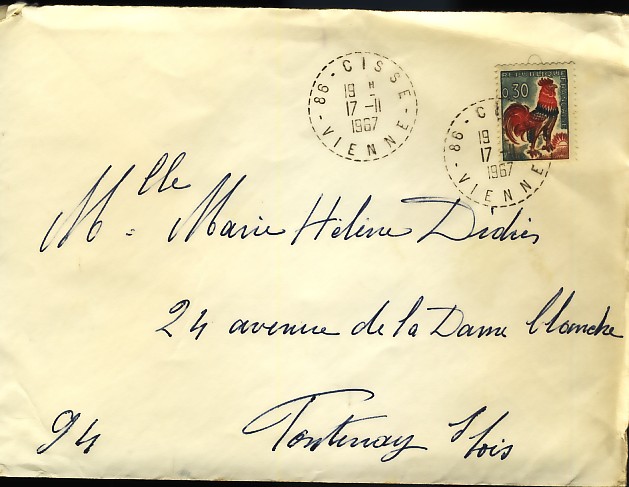 86 - CISSE
19 H
17 - 11
1967
VIENNE
REPUBLIQUE FRANCAISE
0,30
86 - C
19
17 -
1967
VIENNE
Mlle Marie Hélène Dédies
24 avenue de la Dame blanche
94 Fontenay s/bois